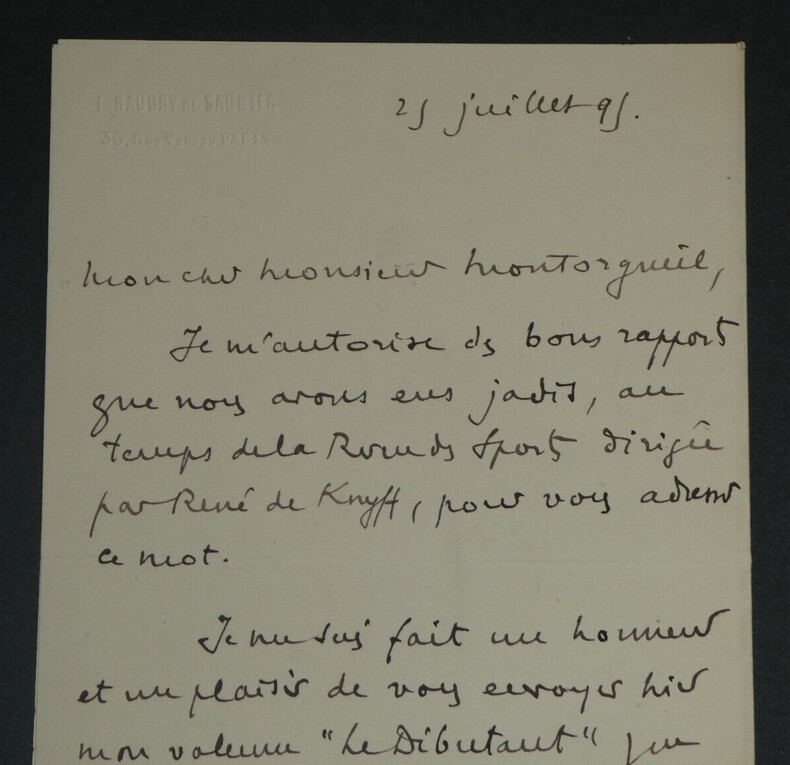 L. BAUDRY DE SAUNIER
36, Rue PARIS
25 juillet 95.
Mon cher Monsieur Montorgueil,
Je m'autorise des bons rapports
que nous avons eus jadis, au
temps de la Revue des Sports dirigée
par René de Knyff, pour vous adresser
ce mot.
Je me suis fait un honneur
et un plaisir de vous envoyer hier
mon volume "Le Débutant" que